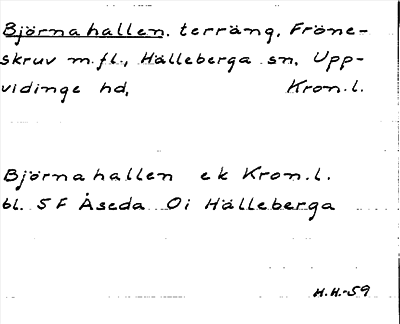 Björnahallen, terräng, Fröne-
skruv m.fl., Hälleberga sn, Upp-
vidinge hd, Kron.l.
Björnahallen ek Kron.l.
bl. 5 F Åseda Oi Hälleberga
H.H.-59